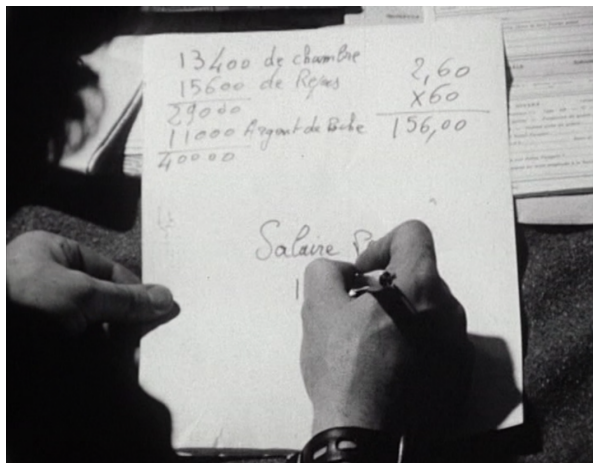 13400 de chambre
15600 de Repas
29000
11000 Argent de Poche
40000
2,60
x60
156,00
Salaire
1